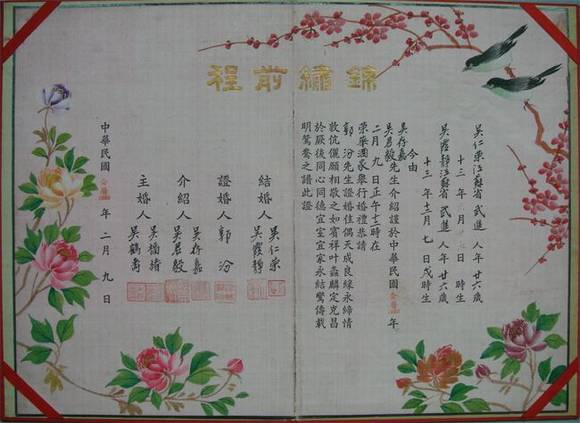 錦繡前程
吳仁榮江蘇省武進人年廿六歲
十三年 月 日 時生
吳霞靜江蘇省武進人年廿六歲
十三年十二月七日戌時生
今由
吳存嘉
吳君毅先生介紹謹於中華民國 年
二月九日正午十二時在
榮華酒家舉行婚禮恭請
郭汾先生證婚佳偶天成良緣永締情
敦伉儷願相敬之如賓祥叶螽麟定克昌
於厥後同心同德宜室宜家永結鸞儔載
明鴛鴦之譜此證
結婚人 吳仁榮
吳霞靜
證婚人 郭汾
介紹人 吳存嘉
吳君毅
主婚人 吳
吳鶴
中華民國 年二月九日